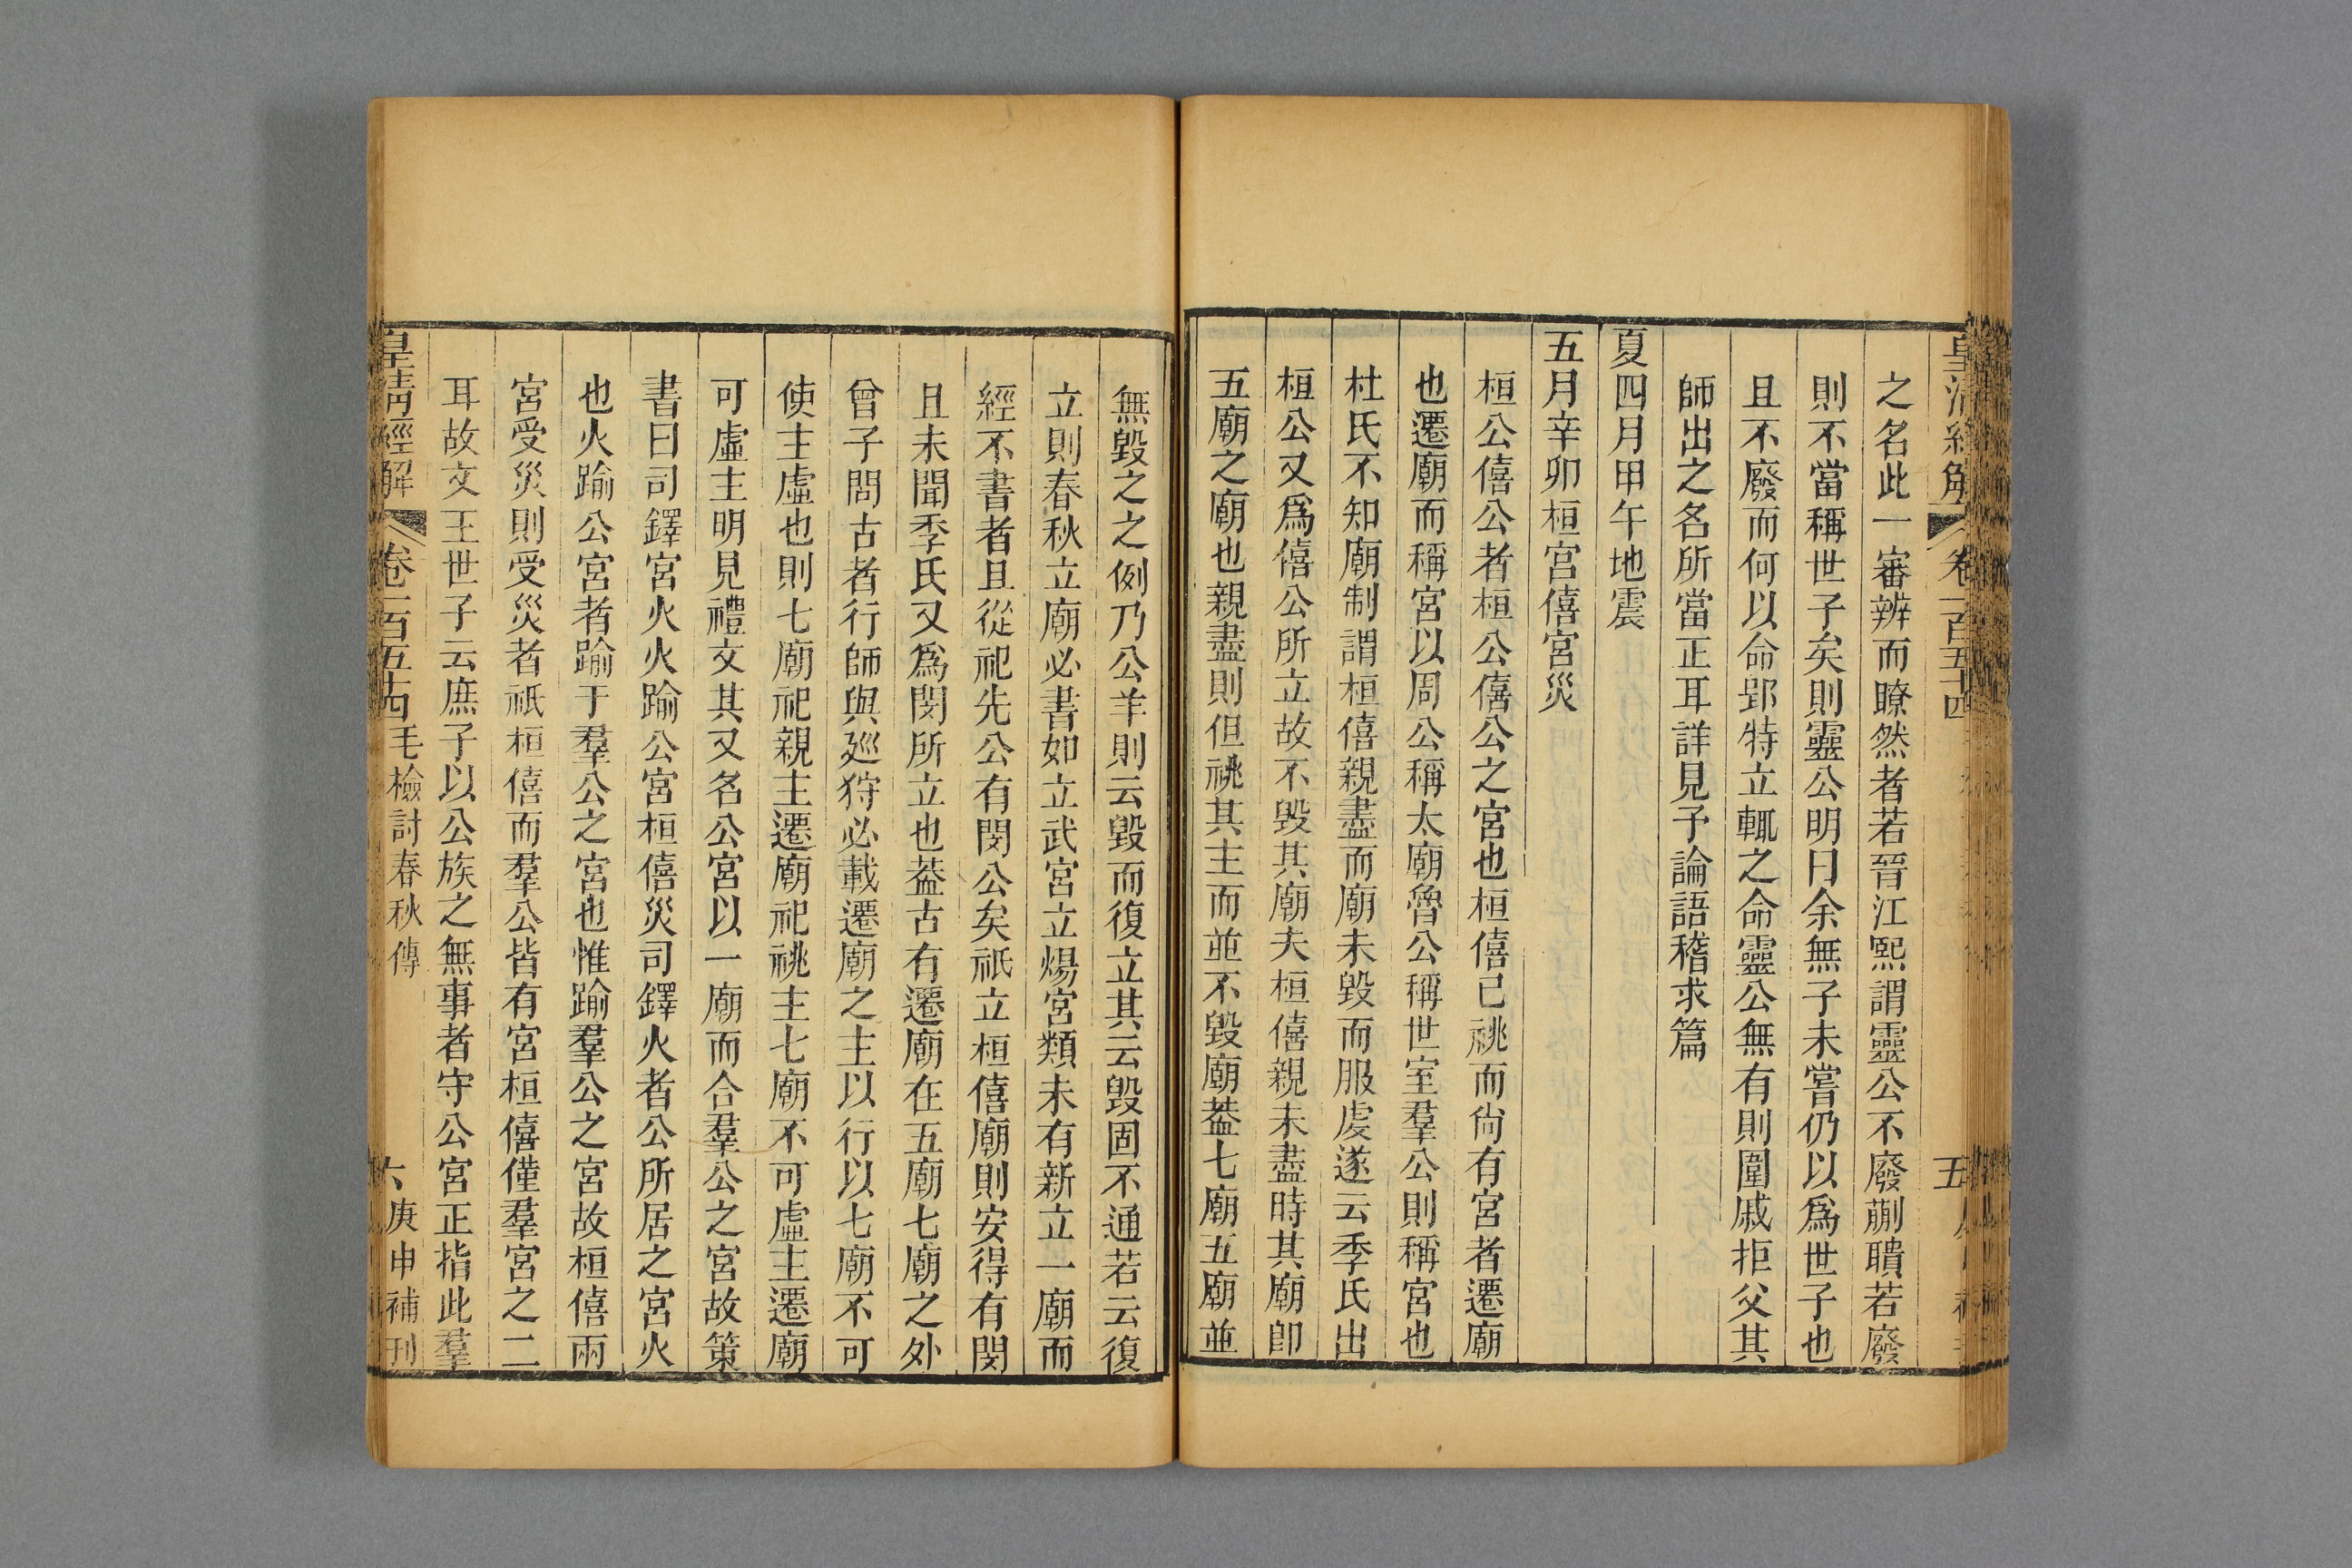 皇清經解 卷一百五十四 五
之名此一審辨而瞭然者若晉江熙謂靈公不廢蒯聵若廢
則不當稱世子矣則靈公明日余無子未嘗仍以爲世子也
且不廢而何以命郢特立輒之命靈公無有則圍戚拒父其
師出之名所當正耳詳見予論語稽求篇
夏四月甲午地震
五月辛卯桓宮僖宮災
桓公僖公者桓公僖公之宮也桓僖已祧而尙有宮者遷廟
也遷廟而稱宮以周公稱太廟魯公稱世室羣公則稱宮也
杜氏不知廟制謂桓僖親盡而廟未毀而服虔遂云季氏出
桓公又爲僖公所立故不毀其廟夫桓僖親未盡時其廟卽
五廟之廟也親盡則但祧其主而並不毀廟葢七廟五廟並
無毀之之例乃公羊則云毀而復立其云毀固不通若云復
立則春秋立廟必書如立武宮立煬宮類未有新立一廟而
經不書者且從祀先公有閔公矣祇立桓僖廟則安得有閔
且未聞季氏又爲閔所立也葢古有遷廟在五廟七廟之外
曾子問古者行師與廵狩必載遷廟之主以行以七廟不可
使主虛也則七廟祀親主遷廟祀祧主七廟不可虛主遷廟
可虛主明見禮文其又名公宮以一廟而合羣公之宮故策
書曰司鐸宮火火踰公宮桓僖災司鐸火者公所居之宮火
也火踰公宮者踰于羣公之宮也惟踰羣公之宮故桓僖兩
宮受災則受災者祇桓僖而羣公皆有宮桓僖僅羣宮之二
耳故文王世子云庶子以公族之無事者守公宮正指此羣
皇清經解 卷一百五十四 毛檢討春秋傳 六 庚申補刊